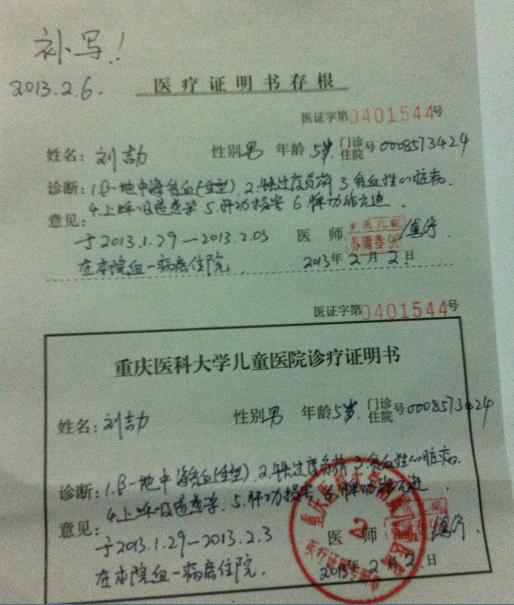 补写!
2013.2.6.
医疗证明书存根
医证字第0401544号
姓名: 刘喆劼 性别男 年龄5岁 门诊住院号0008573424
诊断: 1.β-地中海贫血(重型) 2.铁过度负荷 3.贫血性心脏病.
4.上呼吸道感染 5.肝功损害 6.脾功能亢进.
意见:
于2013.1.29—2013.2.03 医 师
在本院血一病房住院. 2013年2月2日
医证字第0401544号
重庆医科大学儿童医院诊疗证明书
姓名: 刘 性别男 年龄5岁 门诊住院号0008573424
诊断: 1.β-地中海贫血(重型). 2.铁过度负荷 3.贫血性心脏病.
4.上呼吸道感染. 5.肝功损害 6.脾功能亢进.
意见:
于2013.1.29—2013.2.3 医 师
在本院血一病房住院. 2013年2月2日